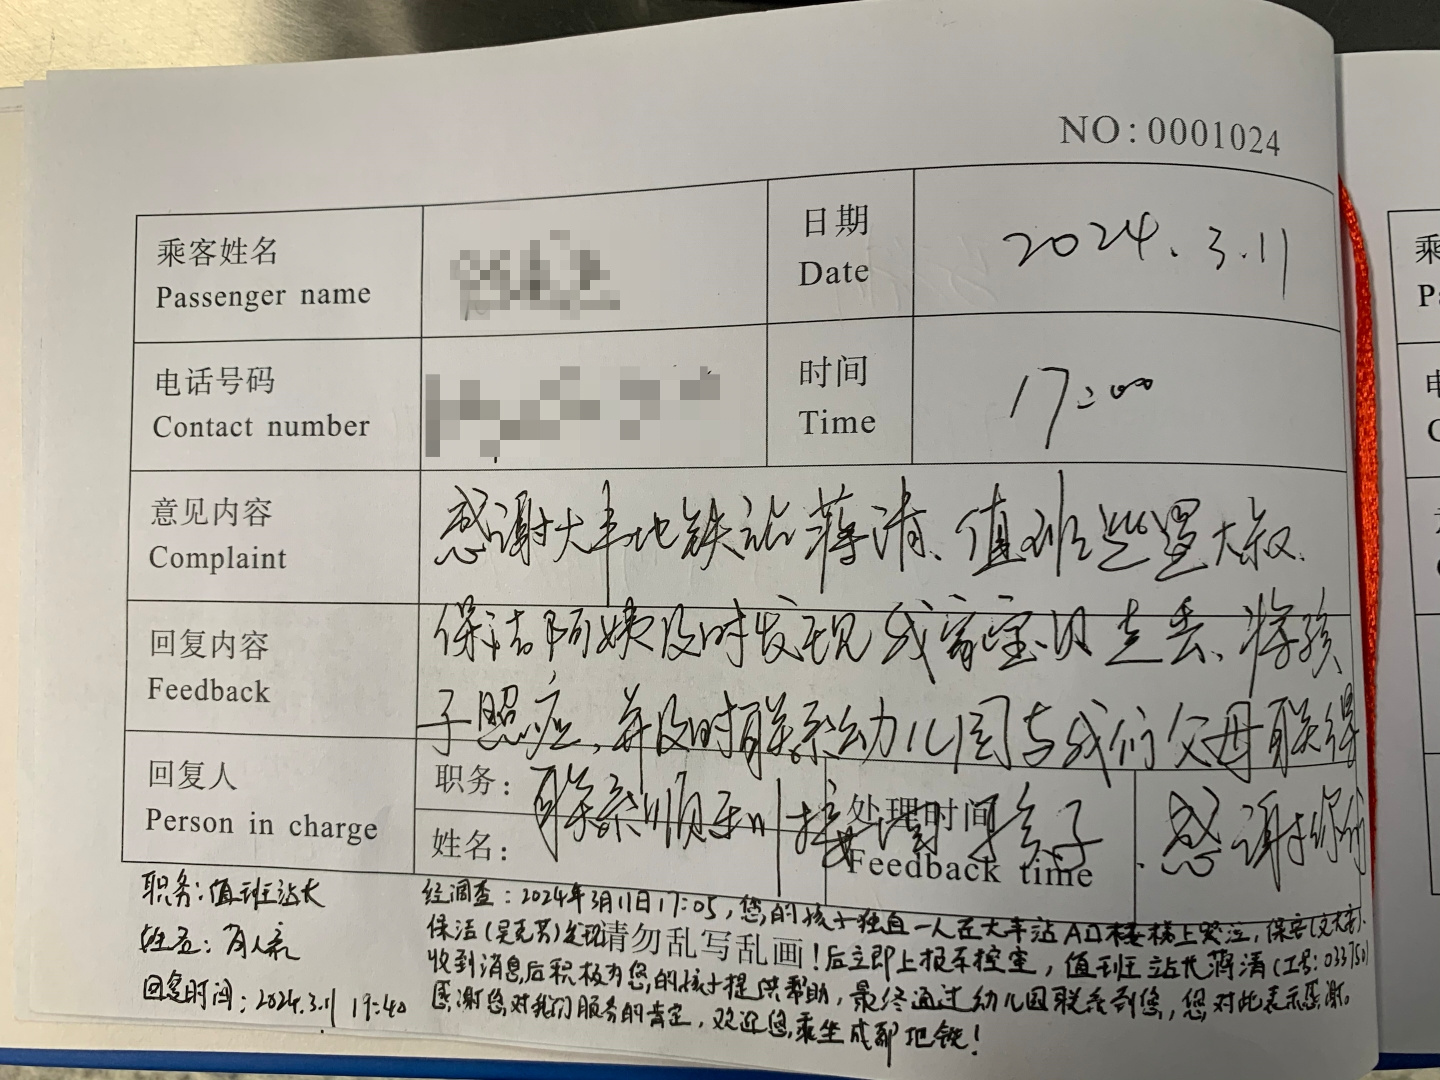 NO:0001024
乘客姓名
Passenger name
日期
Date
2024.3.11
电话号码
Contact number
时间
Time
17:00
意见内容
Complaint
感谢大丰地铁站蒋清、值班 大叔、
回复内容
Feedback
保洁阿姨及时发现我家宝贝走丢、将孩
子照应,并及时联系幼儿园与我们父母联系
回复人
Person in charge
职务:
姓名:
处理时间
Feedback time
联系 顺利接 孩子.感谢你们
职务:值班站长
姓名:
回复时间:2024.3.11 19:40
经调查:2024年3月11日17:05,您的孩子独自一人在大丰站A口楼梯上哭泣,保安
保洁 发现后立即上报车控室,值班站长蒋清(工号:033750)
请勿乱写乱画!
收到消息后积极为您的孩子提供帮助,最终通过幼儿园联系到您,您对此表示感谢。
感谢您对我们服务的肯定,欢迎您乘坐成都地铁!
乘
P
电
C